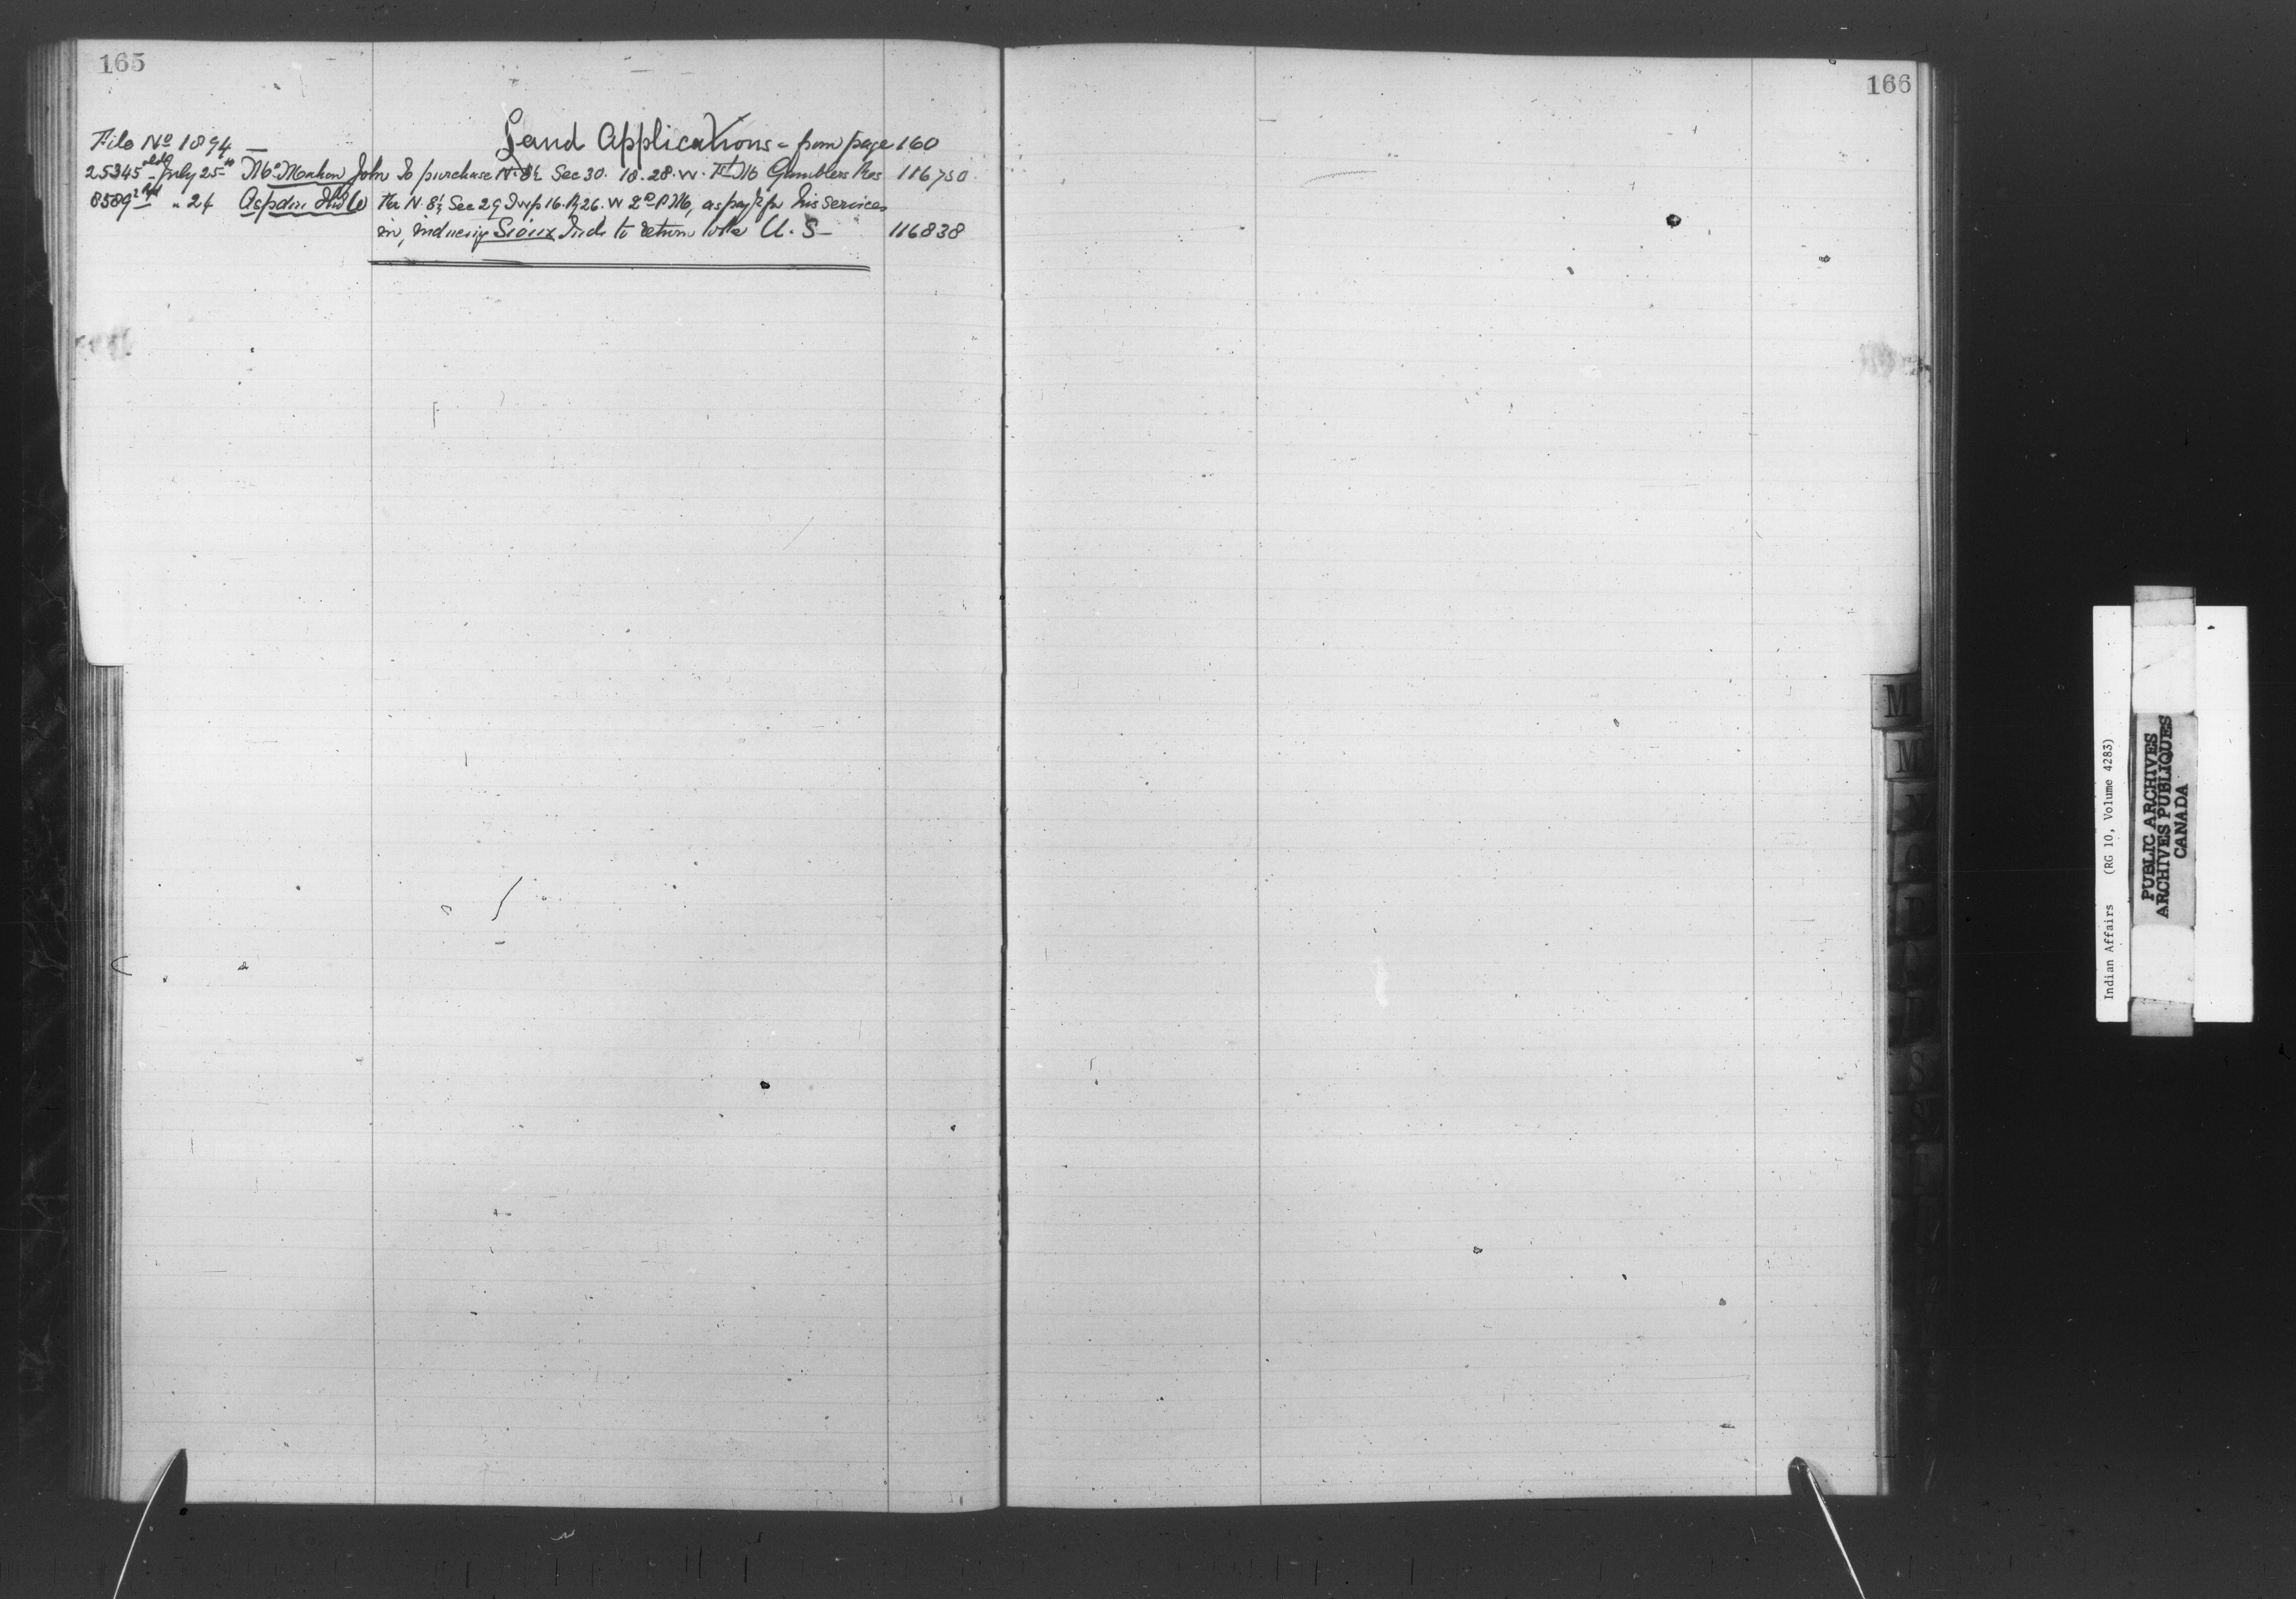 165
166
Land Applications - from page 160
File No 1894
25345 July 25th McMahon John To purchase N. ½ Sec 30. 18. 28. W. 1st M Gamblers Res 116750
8589 " 24 Aspdin The N. ½ Sec 29 Twp 16. R 26. W 2nd P M, as pay't for his services
in, inducing Sioux Inds to return to the U. S - 116838
M
M
Indian Affairs (RG 10, Volume 4283)
PUBLIC ARCHIVES
ARCHIVES PUBLIQUES
CANADA